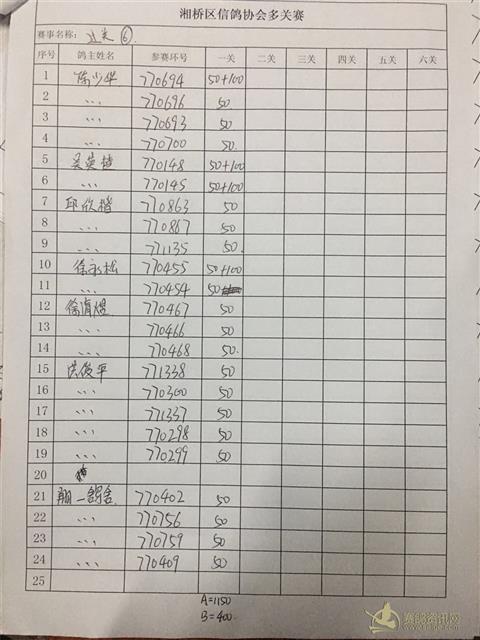 湘桥区信鸽协会多关赛
赛事名称: 过关 ⑥.
序号 鸽主姓名 参赛环号 一关 二关 三关 四关 五关 六关
1 陈少华 770694 50+100
2 、、、 770696 50
3 、、、 770693 50
4 、、、 770700 50.
5 吴英楷 770148 50+100
6 、、、 770145 50+100
7 邱欣楷 770863 50
8 、、、 770867 50
9 、、、 771135 50.
10 徐永松 770455 50+100
11 、、、 770454 50
12 770467 50
13 、、、 770466 50
14 、、、 770468 50.
15 洪俊平 771338 50
16 、、、 770300 50
17 、、、 771337 50
18 、、、 770298 50
19 、、、 770299 50
20
21 翔一鸽舍 770402 50
22 、、、 770756 50
23 、、、 770759 50
24 、、、 770409 50
25
A=1150
B=400.
赛鸽资讯网